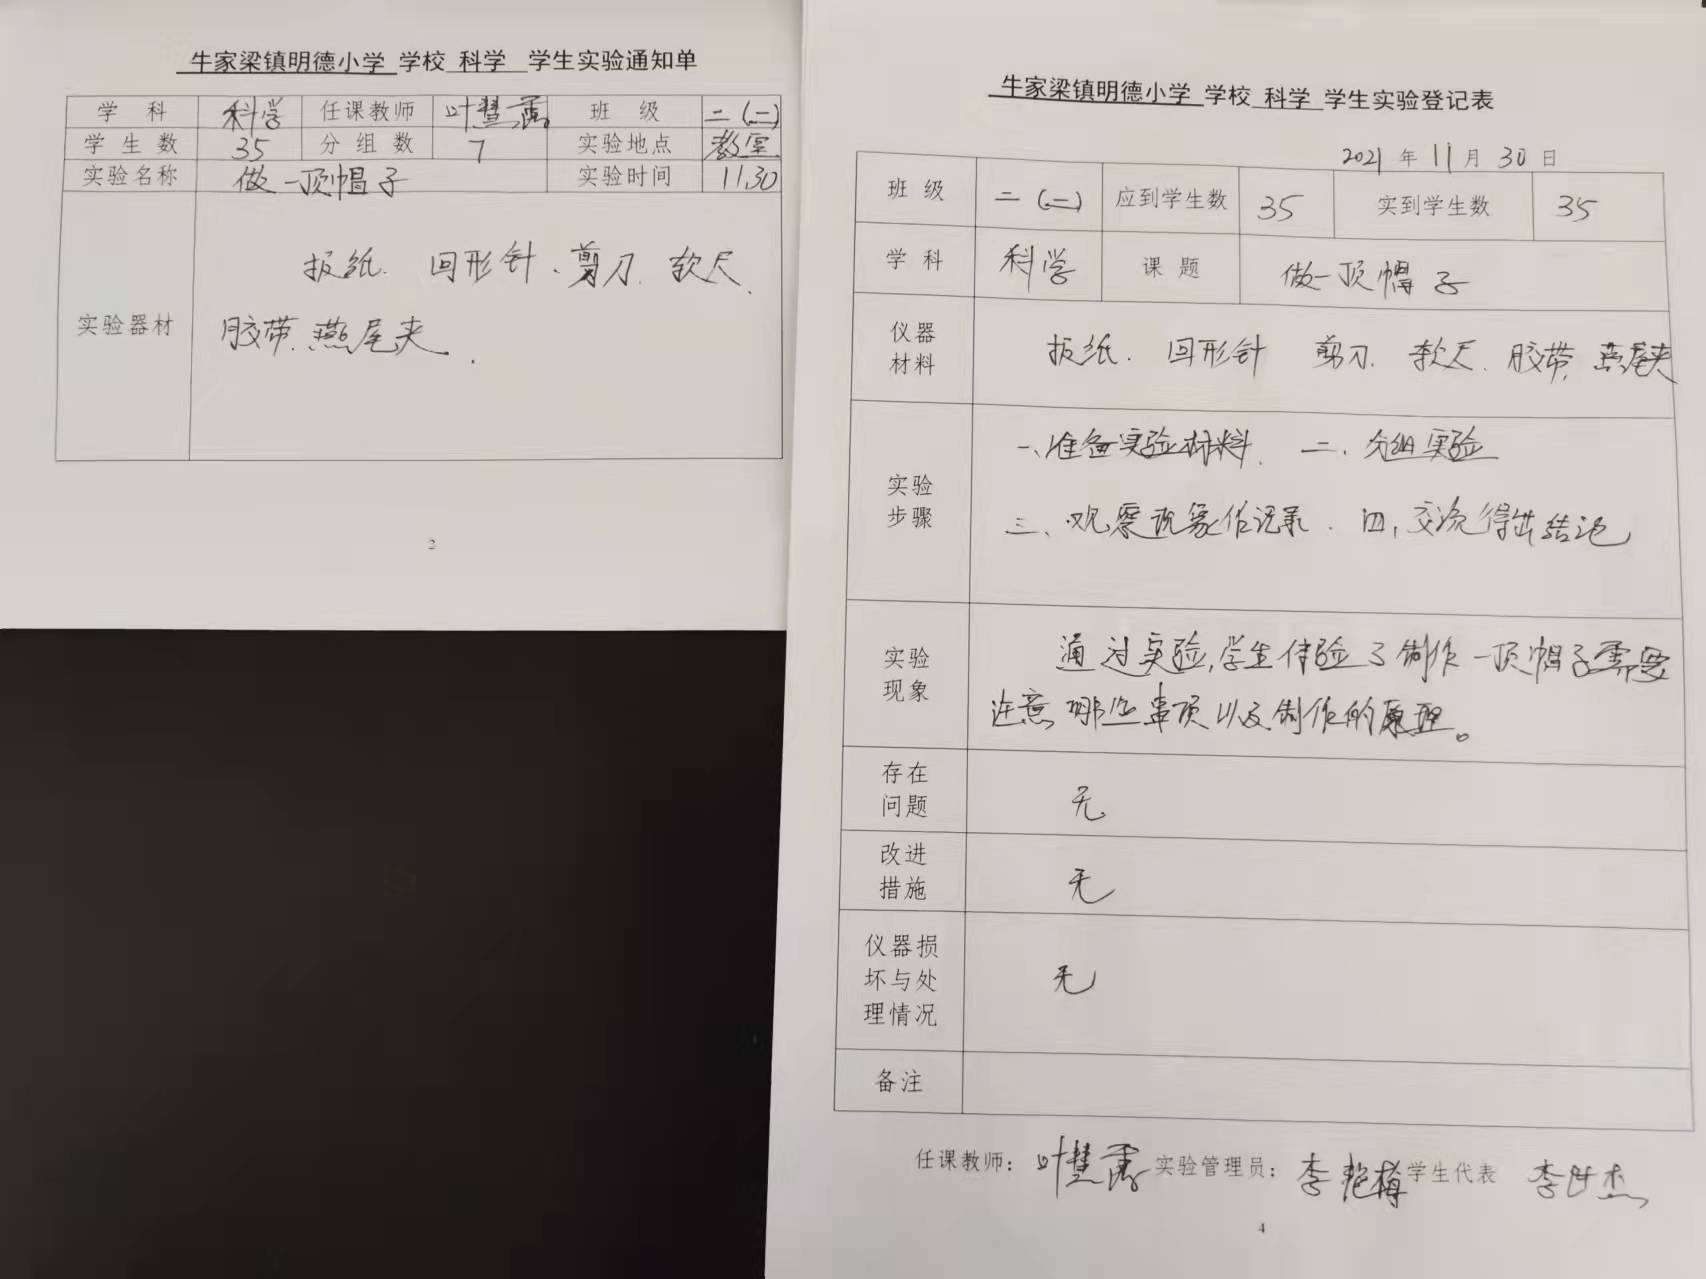 牛家梁镇明德小学 学校 科学 学生实验通知单
学 科 科学 任课教师 叶慧 班 级 二(二)
学 生 数 35 分 组 数 7 实验地点 教室
实验名称 做一顶帽子 实验时间 11.30
报纸. 回形针、剪刀. 软尺.
实验器材 胶带. 燕尾夹.
2
牛家梁镇明德小学 学校 科学 学生实验登记表
2021 年 11 月 30 日
班 级 二(二) 应到学生数 35 实到学生数 35
学 科 科学 课 题 做一顶帽子
仪器
材料
报纸. 回形针 剪刀. 软尺. 胶带. 燕尾夹
实验
步骤
一、准备实验材料. 二、分组实验
三、观察现象作记录. 四,交流得出结论
实验
现象
通过实验,学生体验了制作一顶帽子需要
注意哪些事项以及制作的原理。
存在
问题
无
改进
措施
无
仪器损
坏与处
理情况
无
备注
任课教师: 叶慧 实验管理员: 李艳梅 学生代表 李世杰
4